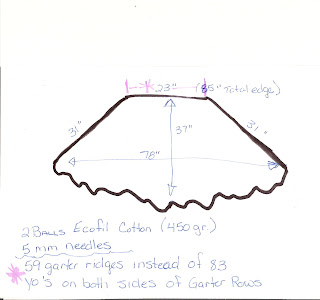 23" (85" Total edge)
31"
37"
31"
78"
2 Balls Ecofil Cotton (450 gr.)
5 mm needles
* 59 garter ridges instead of 83
yo's on both sides of Garter Rows